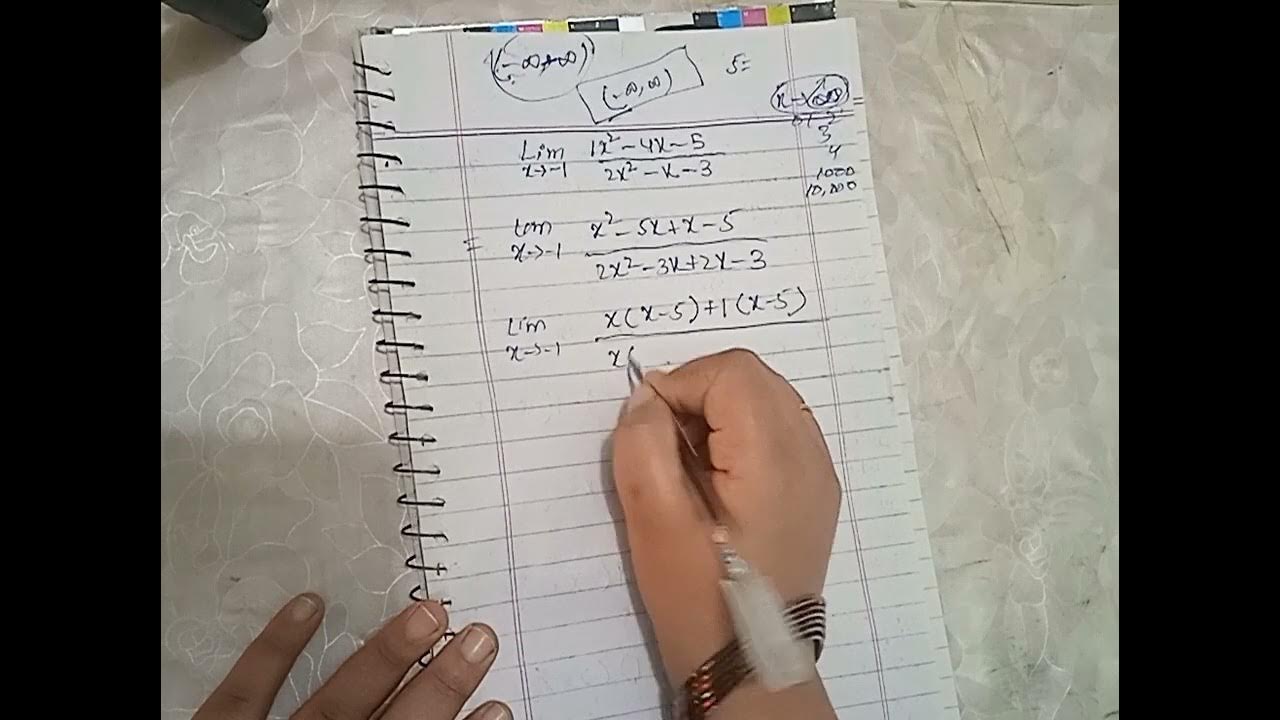 (-∞,+∞)
(-∞, ∞)
5=
x→∞ =
3
4
1000
10,000
Lim 1x²-4x-5
x→-1 2x²-x-3
= Lim x²-5x+x-5
x→-1 2x²-3x+2x-3
Lim x(x-5)+1(x-5)
x→-1 x(